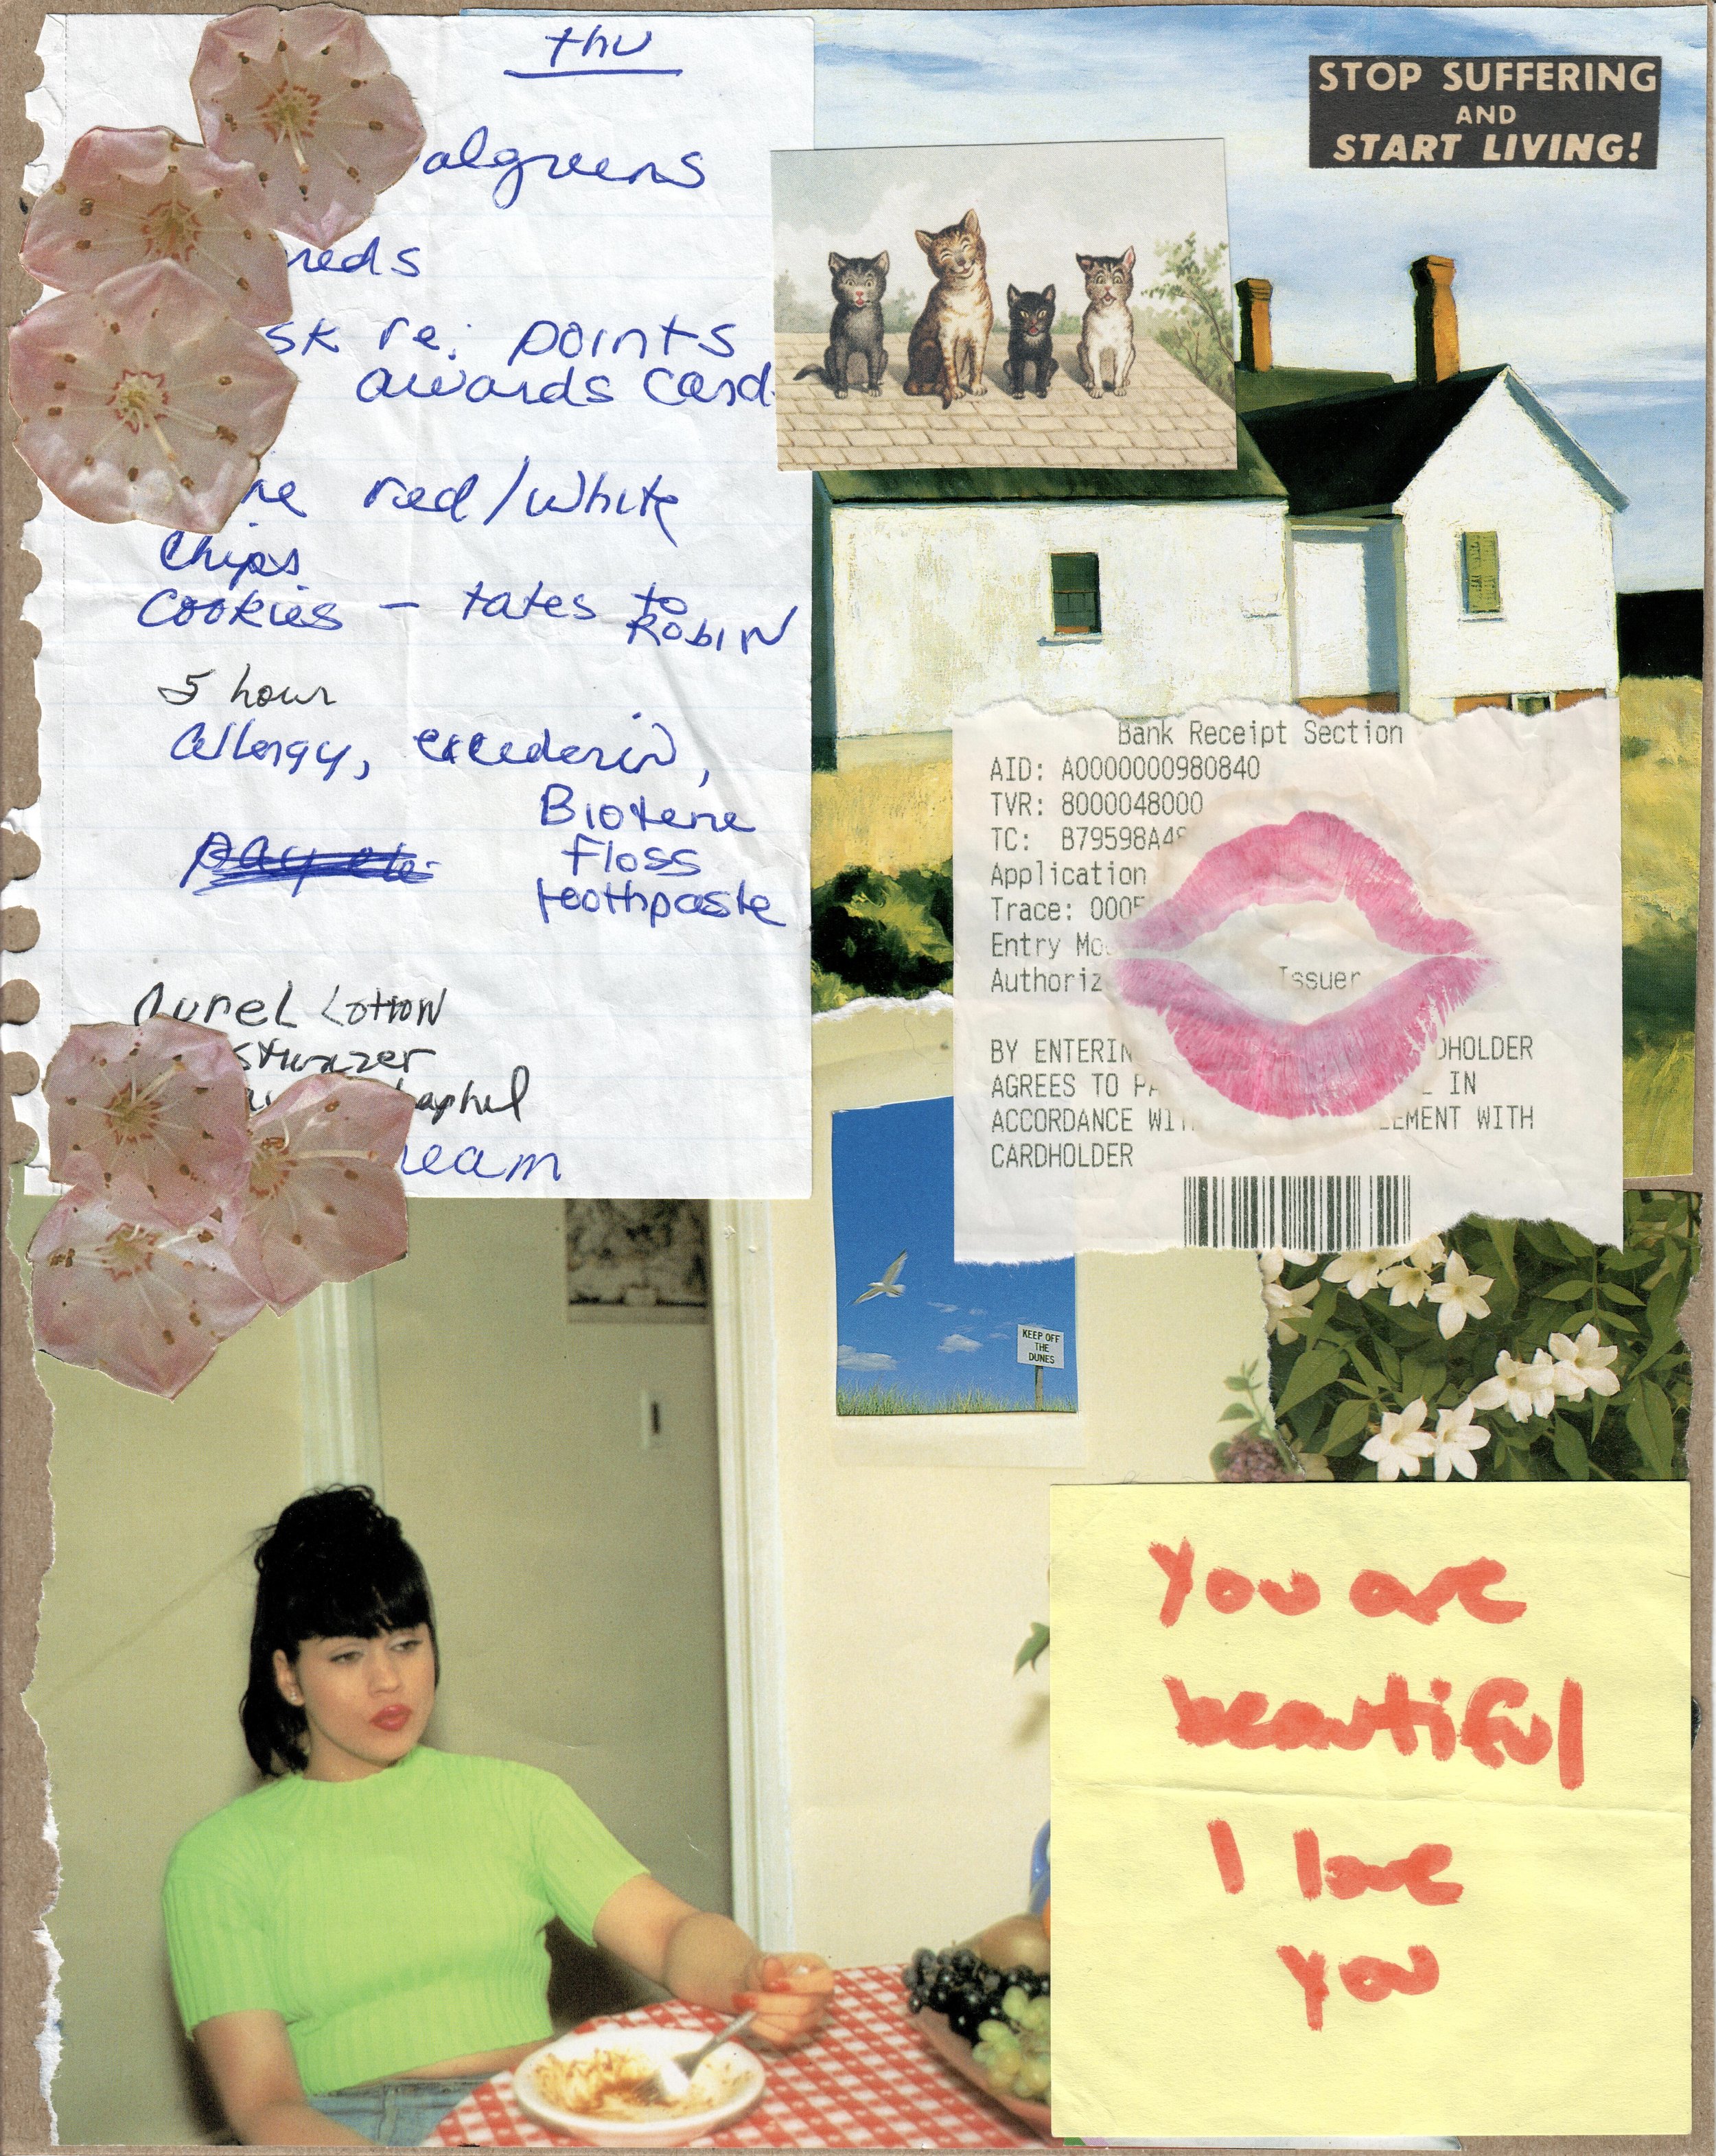 thu
algreens
meds
sk re: points
awards card
ne red/white
chips
cookies - tates to
ROBIN
5 hour
allergy, excederin,
Biotene
floss
toothpaste
Lotion
eam
STOP SUFFERING
AND
START LIVING!
Bank Receipt Section
AID: A0000000980840
TVR: 8000048000
TC: B79598A48
Application
Trace: 0005
Entry Mo
Authoriz Issuer
BY ENTERIN DHOLDER
AGREES TO PA L IN
ACCORDANCE WIT EEMENT WITH
CARDHOLDER
KEEP OFF
THE
DUNES
You are
beautiful
I love
you